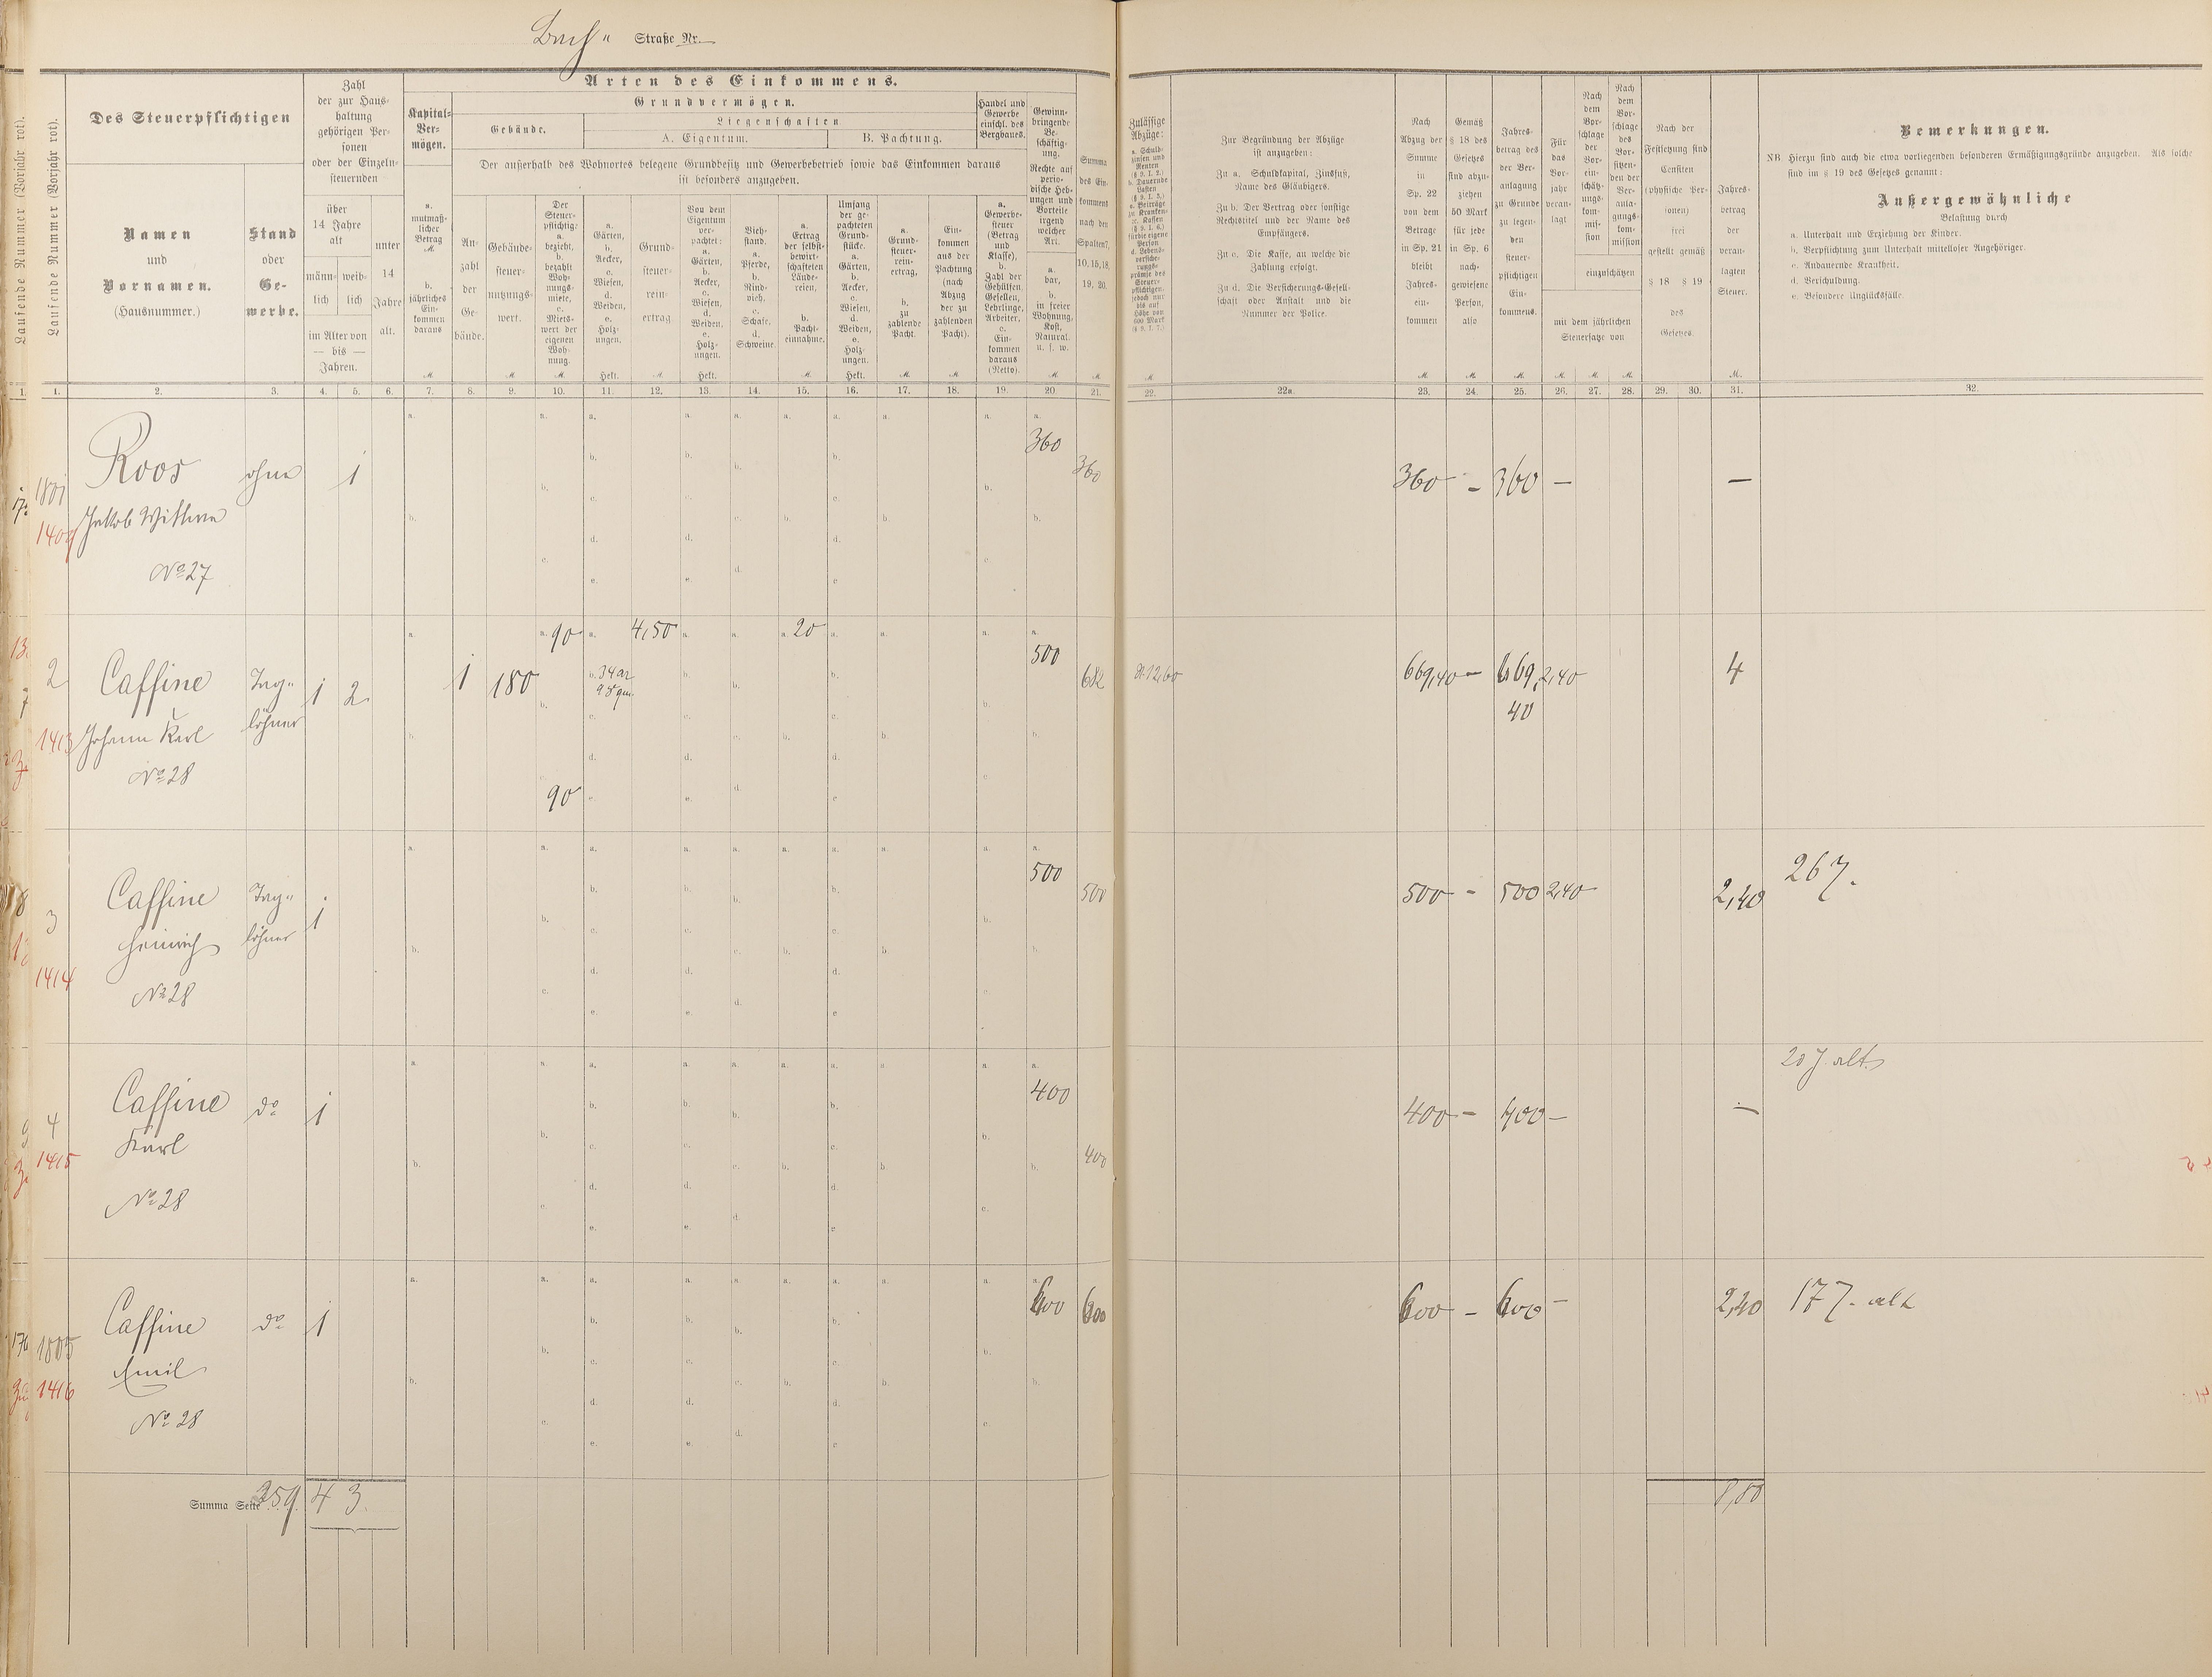 Bach" Straße Nr.
Laufende Nummer (Vorjahr rot).
Laufende Nummer (Vorjahr rot).
Des Steuerpflichtigen
Namen
und
Vornamen.
(Hausnummer.)
Stand
oder
Ge-
werbe.
Zahl
der zur Haus-
haltung
gehörigen Per-
sonen
oder der Einzeln-
steuernden
über
14 Jahre
alt
männ-
lich
weib-
lich
im Alter von
— bis —
Jahren.
unter
14
Jahre
alt.
Arten des Einkommens.
Kapital-
Ver-
mögen.
a.
mutmaß-
licher
Betrag
M.
b.
jährliches
Ein-
kommen
daraus
M.
Grundvermögen.
Gebäude.
Liegenschaften
A. Eigentum.
B. Pachtung.
Der außerhalb des Wohnortes belegene Grundbesitz und Gewerbebetrieb sowie das Einkommen daraus
ist besonders anzugeben.
An-
zahl
der
Ge-
bäude.
Gebäude-
steuer-
nutzungs-
wert.
M.
Der
Steuer-
pflichtige
a.
bezieht,
b.
bezahlt
Woh-
nungs-
miete,
c.
Miets-
wert der
eigenen
Woh-
nung.
M.
a.
Gärten,
b.
Aecker,
c.
Wiesen,
d.
Weiden,
e.
Holz-
ungen.
Hekt.
Grund-
steuer-
rein-
ertrag
M.
Von dem
Eigentum
ver-
pachtet:
a.
Gärten,
b.
Aecker,
c.
Wiesen,
d.
Weiden,
e.
Holz-
ungen.
Hekt.
Vieh-
stand.
a.
Pferde,
b.
Rind-
vieh,
c.
Schafe,
d.
Schweine.
a.
Ertrag
der selbst-
bewirt-
schafteten
Lände-
reien,
b.
Pacht-
einnahme.
M.
Umfang
der ge-
pachteten
Grund-
stücke.
a.
Gärten,
b.
Aecker,
c.
Wiesen,
d.
Weiden,
e.
Holz-
ungen.
Hekt.
a.
Grund-
steuer-
rein-
ertrag,
b.
zu
zahlende
Pacht.
M.
Ein-
kommen
aus der
Pachtung
(nach
Abzug
der zu
zahlenden
Pacht).
M.
Handel und
Gewerbe
einschl. des
Bergbaues.
a.
Gewerbe-
steuer
(Betrag
und
Klasse),
b.
Zahl der
Gehülfen,
Gesellen,
Lehrlinge,
Arbeiter,
c.
Ein-
kommen
daraus
(Netto).
Gewinn-
bringende
Be-
schäftig-
ung.
Rechte auf
perio-
dische Heb-
ungen und
Vorteile
irgend
welcher
Art.
a.
bar,
b.
in freier
Wohnung,
Kost,
Natural.
u. s. w.
M.
Summa
des Ein-
kommens
nach den
Spalten 7,
10, 15, 18,
19, 20.
M.
Zulässige
Abzüge:
a. Schuld-
zinsen und
Renten
(§ 9. I. 2.)
b. Dauernde
Lasten
(§ 9. I. 3.)
c. Beiträge
zu Kranken-
ꝛc. Kassen
(§ 9. I. 6.)
für die eigene
Person
d. Lebens-
versiche-
rungs-
prämie des
Steuer-
pflichtigen,
jedoch nur
bis auf
Höhe von
600 Mark
(§ 9. I. 7.)
M.
Zur Begründung der Abzüge
ist anzugeben:
Zu a. Schuldkapital, Zinsfuß,
Name des Gläubigers.
Zu b. Der Vertrag oder sonstige
Rechtstitel und der Name des
Empfängers.
Zu c. Die Kasse, an welche die
Zahlung erfolgt.
Zu d. Die Versicherungs-Gesell-
schaft oder Anstalt und die
Nummer der Police.
Nach
Abzug der
Summe
in
Sp. 22
von dem
Betrage
in Sp. 21
bleibt
Jahres-
ein-
kommen
M.
Gemäß
§ 18 des
Gesetzes
sind abzu-
ziehen
50 Mark
für jede
in Sp. 6
nach-
gewiesene
Person,
also
M.
Jahres-
betrag des
der Ver-
anlagung
zu Grunde
zu legen-
den
steuer-
pflichtigen
Ein-
kommens.
M.
Für
das
Vor-
jahr
veran-
lagt
Nach
dem
Vor-
schlage
der
Vor-
ein-
schätz-
ungs-
kom-
mis-
sion
Nach
dem
Vor-
schlage
des
Vor-
sitzen-
den der
Ver-
anla-
gungs-
kom-
mission
einzuschätzen
mit dem jährlichen
Steuersatze von
M. M. M.
Nach der
Festsetzung sind
Censiten
(physische Per-
sonen)
frei
gestellt gemäß
§ 18 § 19
des
Gesetzes.
Jahres-
betrag
der
veran-
lagten
Steuer.
M.
Bemerkungen.
NB. Hierzu sind auch die etwa vorliegenden besonderen Ermäßigungsgründe anzugeben. Als solche
sind im § 19 des Gesetzes genannt:
Außergewöhnliche
Belastung durch
a. Unterhalt und Erziehung der Kinder.
b. Verpflichtung zum Unterhalt mittelloser Angehöriger.
c. Andauernde Krankheit.
d. Verschuldung.
e. Besondere Unglücksfälle.
1. 1. 2. 3. 4. 5. 6. 7. 8. 9. 10. 11. 12. 13. 14. 15. 16. 17. 18. 19. 20. 21. 22. 22a. 23. 24. 25. 26. 27. 28. 29. 30. 31. 32.
1801 Roos ohne 1 360 360 360 - 360 — —
1409 Jakob Wittwe
No 27
2 Caffine Tag- 1 2 1 180 90 34 ar 4,50 20 500 682 12,60 669,40 — 669, 2,40 4
98 qm 40
1413 Johann Karl löhner
No 28
90
3 Caffine Tag- 1 500 500 500 - 500 2,40 2,40 26 J.
Heinrich löhner
1414 No 28
4 Caffine do 1 400 400 400 - 400 — — 20 J. alt
1415 Karl
No 28
1805 Caffine do 1 600 600 600 - 600 — 2,40 17 J. alt
1416 Emil
No 28
Summa Seite 359. 4 3. 8,80